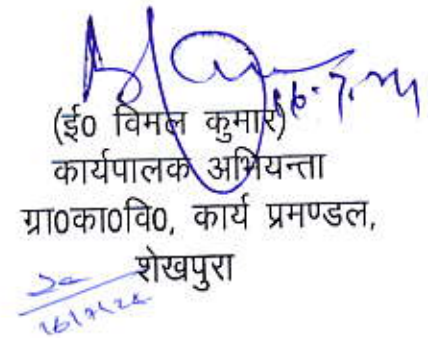 16.7.24
(ई0 विमल कुमार)
कार्यपालक अभियन्ता
ग्रा0का0वि0, कार्य प्रमण्डल,
शेखपुरा
16/7/24